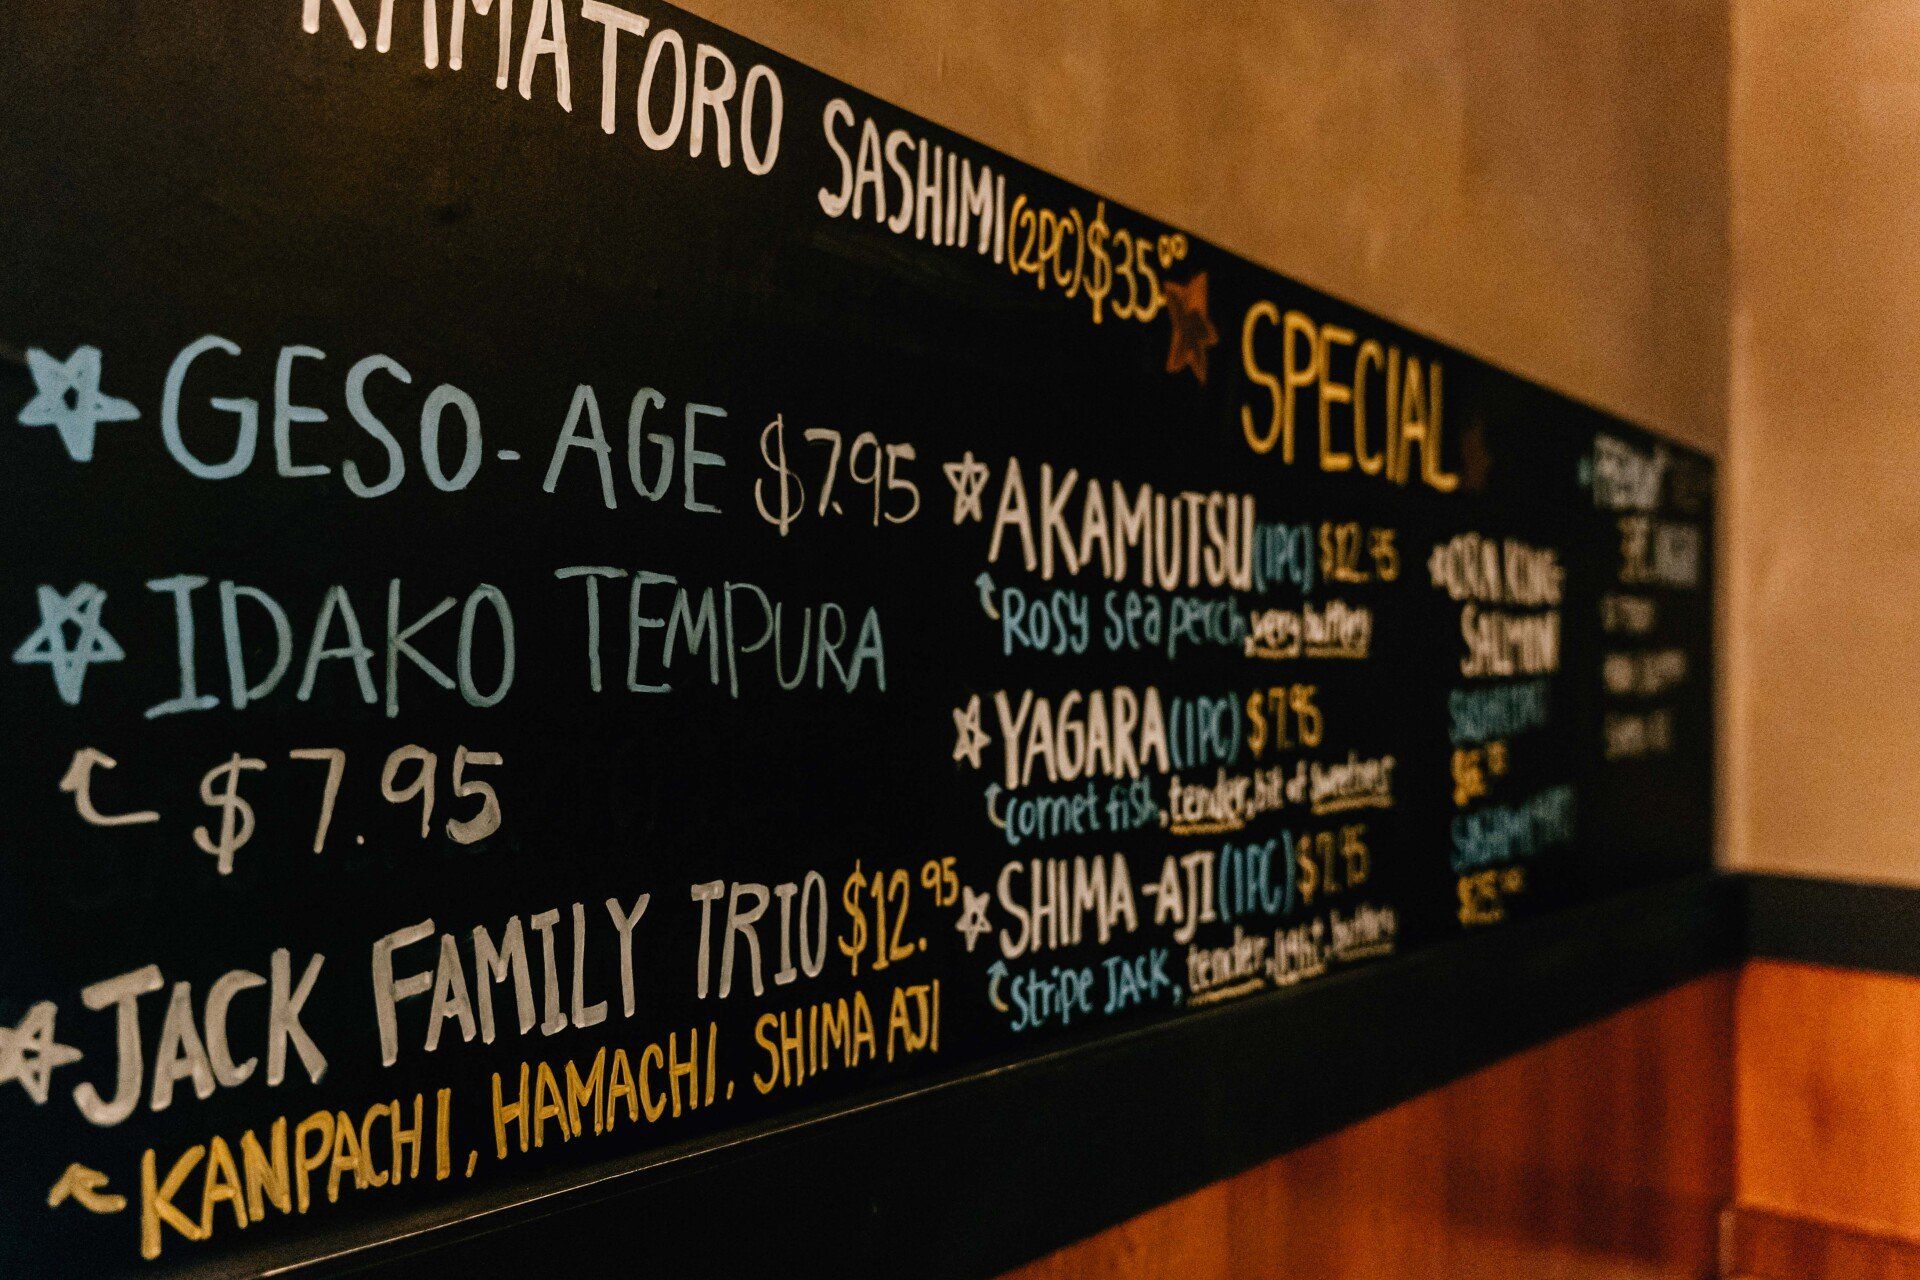 KAMATORO SASHIMI (2PC) $35.00
GESO-AGE $7.95
IDAKO TEMPURA
$7.95
JACK FAMILY TRIO $12.95
KANPACHI, HAMACHI. SHIMA AJI
SPECIAL
AKAMUTSU (1PC) $12.95
Rosy Sea perch, very buttery
YAGARA (1PC) $7.95
cornet fish, tender, bit of sweetness
SHIMA-AJI (1PC) $7.95
Stripe JACK, tender, light, buttery
KING
SALMON